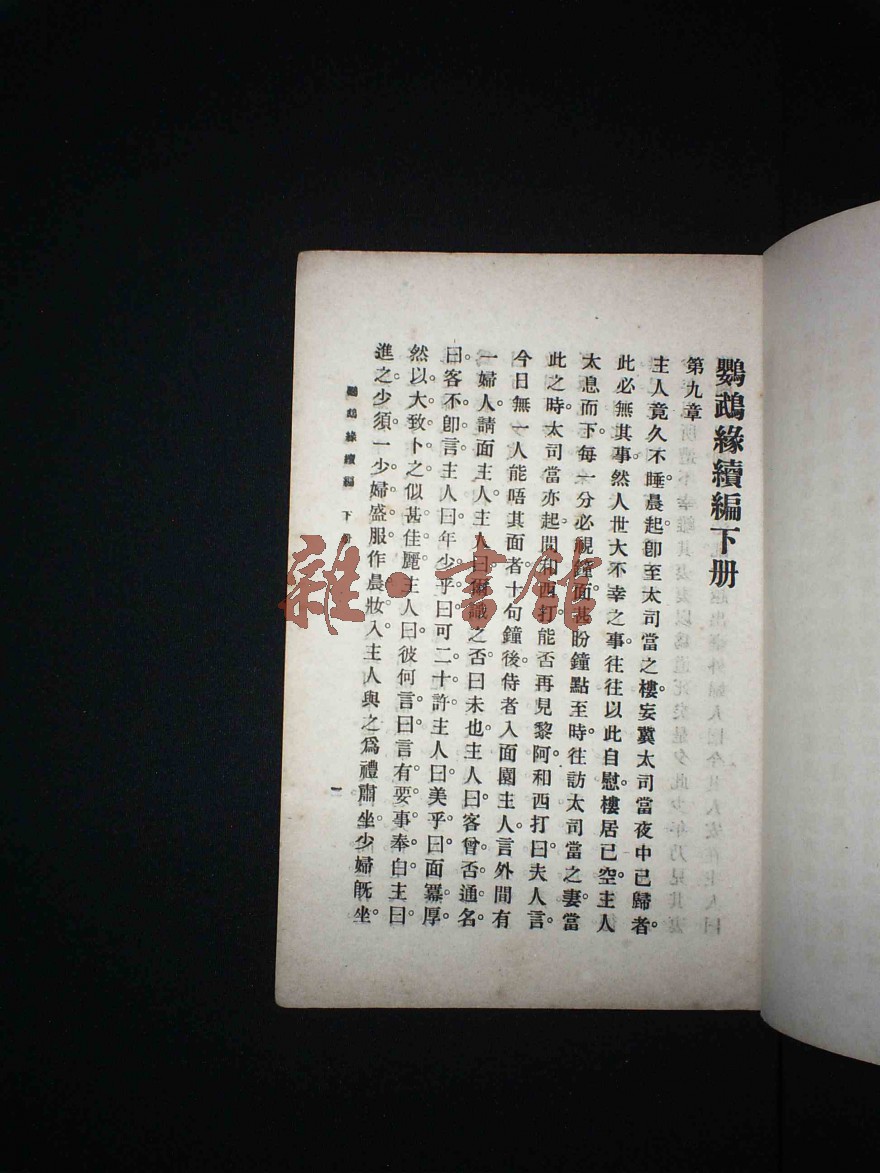 鸚鵡緣續編下册
第九章
主人竟久不睡。晨起卽至太司當之樓。妄冀太司當夜中已歸者。
此必無其事。然人世大不幸之事。往往以此自慰。樓居已空。主人
太息而下。每一分必視鐘面。甚盼鐘點至時。往訪太司當之妻。當
此之時。太司當亦起。問和西打能否再見黎阿。和西打曰。夫人言
今日無一人能晤其面者。十句鐘後。侍者入面園主人。言外間有
一婦人請面主人。主人曰。爾識之否。曰未也。主人曰。客曾否通名。
曰。客不卽言。主人曰。年少乎。曰可二十許。主人曰。美乎。曰面冪厚。
然以大致卜之。似甚佳麗。主人曰。彼何言。曰言有要事奉白。主曰。
進之。少須一少婦盛服作晨妝入。主人與之爲禮。肅坐。少婦旣坐。
鸚鵡緣續編 下册
一
雜·書館